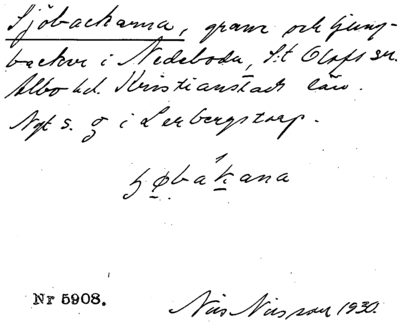 Sjöbackarna, gran och ljung-
backar i Nedaboda, S:t Olofs sn.
Albo hd. Kristianstads län.
Ngt s. g i Lerbergstorp.
ɧøbákana
Nr 5908.
Nils Nilsson 1930.